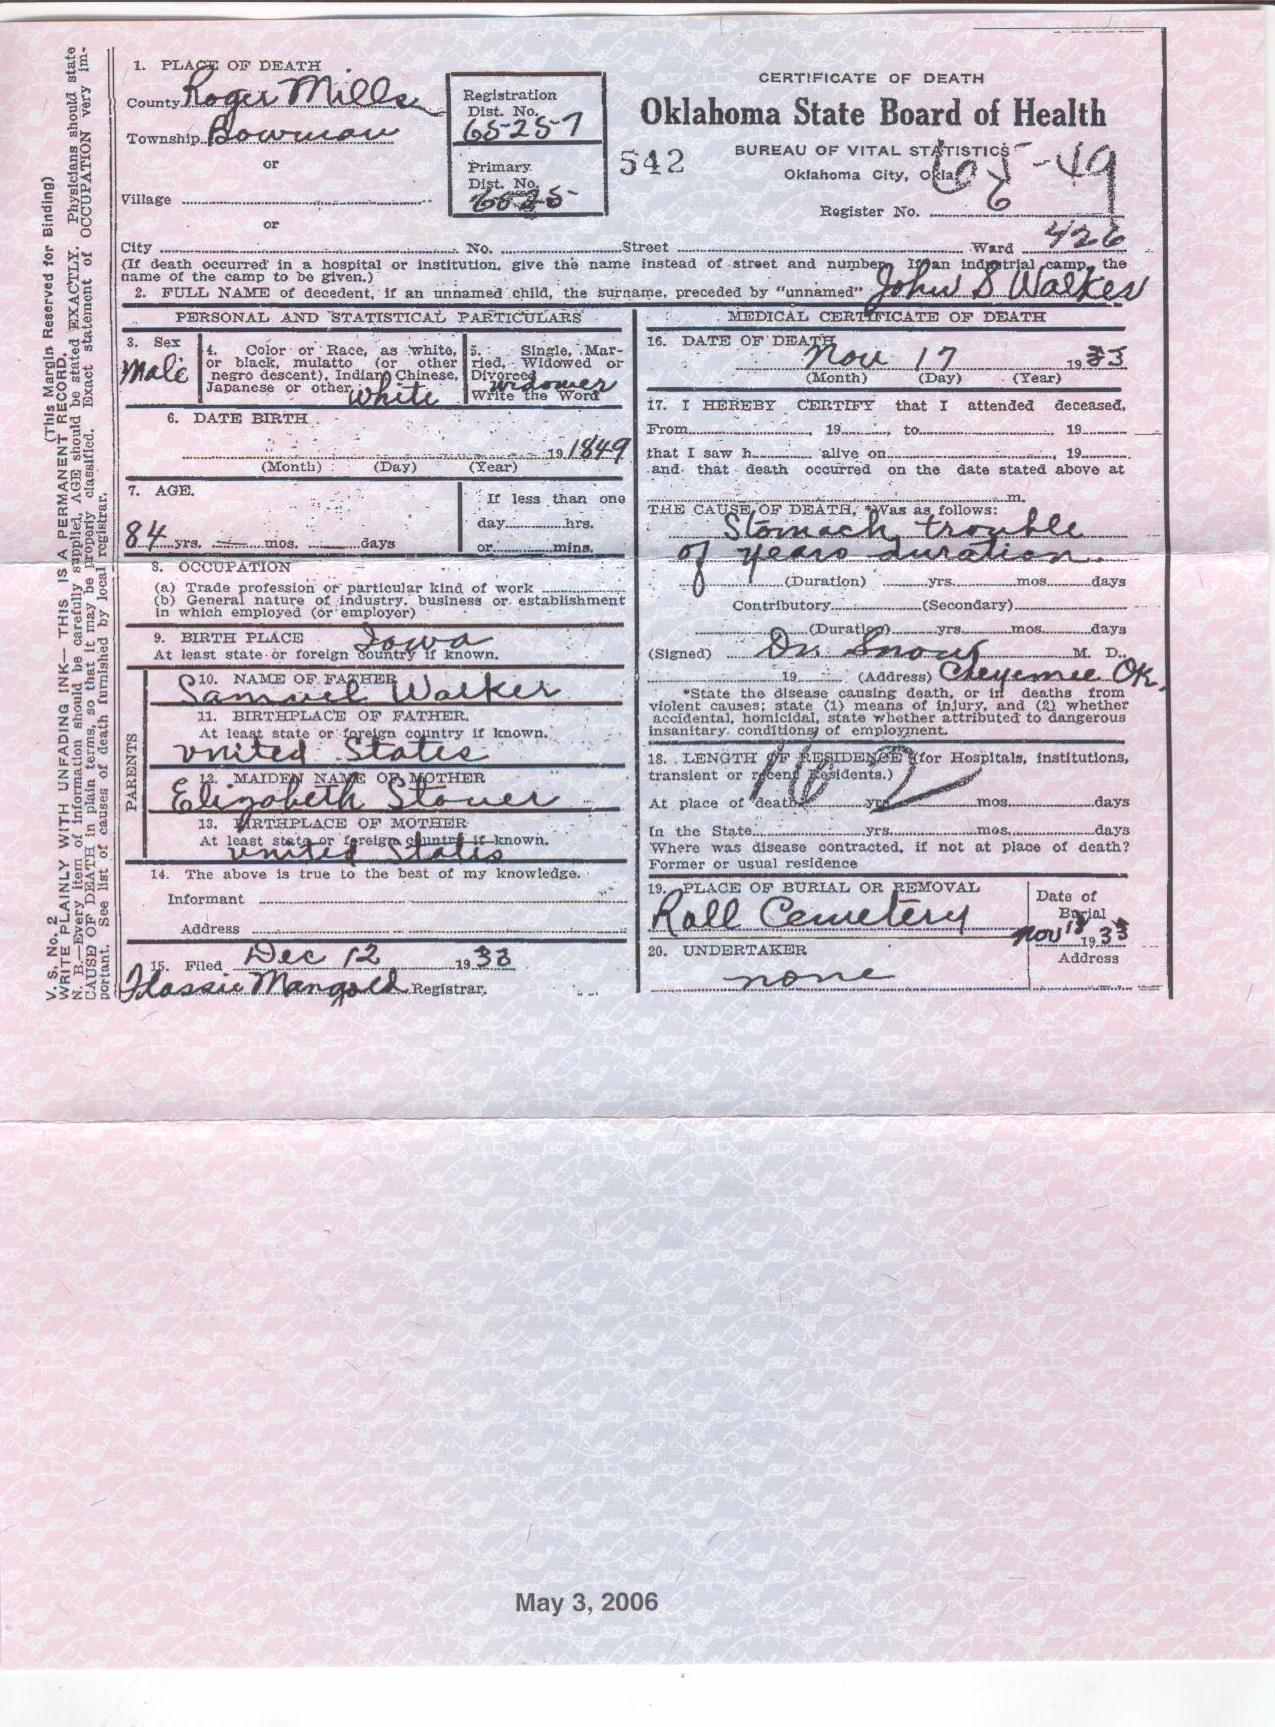 V. S. No. 2
(This Margin Reserved for Binding)
WRITE PLAINLY WITH UNFADING INK— THIS IS A PERMANENT RECORD.
N. B.—Every item of information should be carefully supplied, AGE should be stated EXACTLY. Physicians should state
CAUSE OF DEATH in plain terms, so that it may be properly classified. Exact statement of OCCUPATION very im-
portant. See list of causes of death furnished by local registrar.
1. PLACE OF DEATH
County Roger Mills
Township Bowman
or
Village
or
Registration
Dist. No.
65-25-7
Primary
Dist. No.
6525
542
CERTIFICATE OF DEATH
Oklahoma State Board of Health
BUREAU OF VITAL STATISTICS
Oklahoma City, Okla.
65-49
Register No. 6
City No. Street Ward 426
(If death occurred in a hospital or institution, give the name instead of street and number. If an industrial camp, the
name of the camp to be given.)
2. FULL NAME of decedent, if an unnamed child, the surname, preceded by "unnamed" John S Walker
PERSONAL AND STATISTICAL PARTICULARS
3. Sex
Male
4. Color or Race, as white,
or black, mulatto (or other
negro descent), Indian, Chinese,
Japanese or other. White
5. Single, Mar-
ried, Widowed or
Divorced
widower
Write the Word
6. DATE BIRTH
19 1849
(Month) (Day) (Year)
7. AGE.
84 yrs. — mos. — days
If less than one
day hrs.
or mins.
8. OCCUPATION
(a) Trade profession or particular kind of work
(b) General nature of industry, business or establishment
in which employed (or employer)
9. BIRTH PLACE Iowa
At least state or foreign country if known.
PARENTS
10. NAME OF FATHER
Samuel Walker
11. BIRTHPLACE OF FATHER.
At least state or foreign country if known.
United States
12. MAIDEN NAME OF MOTHER
Elizabeth Stover
13. BIRTHPLACE OF MOTHER
At least state or foreign country if known.
United States
14. The above is true to the best of my knowledge.
Informant
Address
15. Filed Dec 12 1933
Flossie Mangold Registrar.
MEDICAL CERTIFICATE OF DEATH
16. DATE OF DEATH
Nov 17 1933
(Month) (Day) (Year)
17. I HEREBY CERTIFY that I attended deceased,
From , 19 , to 19
that I saw h alive on , 19
and that death occurred on the date stated above at
m.
THE CAUSE OF DEATH, *Was as follows:
Stomach trouble
of years duration
(Duration) yrs. mos. days
Contributory (Secondary)
(Duration) yrs. mos. days
(Signed) Dr. M. D.,
19 (Address) Cheyenne Ok.
*State the disease causing death, or in deaths from
violent causes; state (1) means of injury, and (2) whether
accidental, homicidal, state whether attributed to dangerous
insanitary conditions of employment.
18. LENGTH OF RESIDENCE (for Hospitals, institutions,
transient or recent Residents.)
162
At place of death yrs mos. days
In the State yrs. mos. days
Where was disease contracted, if not at place of death?
Former or usual residence
19. PLACE OF BURIAL OR REMOVAL
Roll Cemetery
Date of
Burial
Nov 18 1933
20. UNDERTAKER
none
Address
May 3, 2006